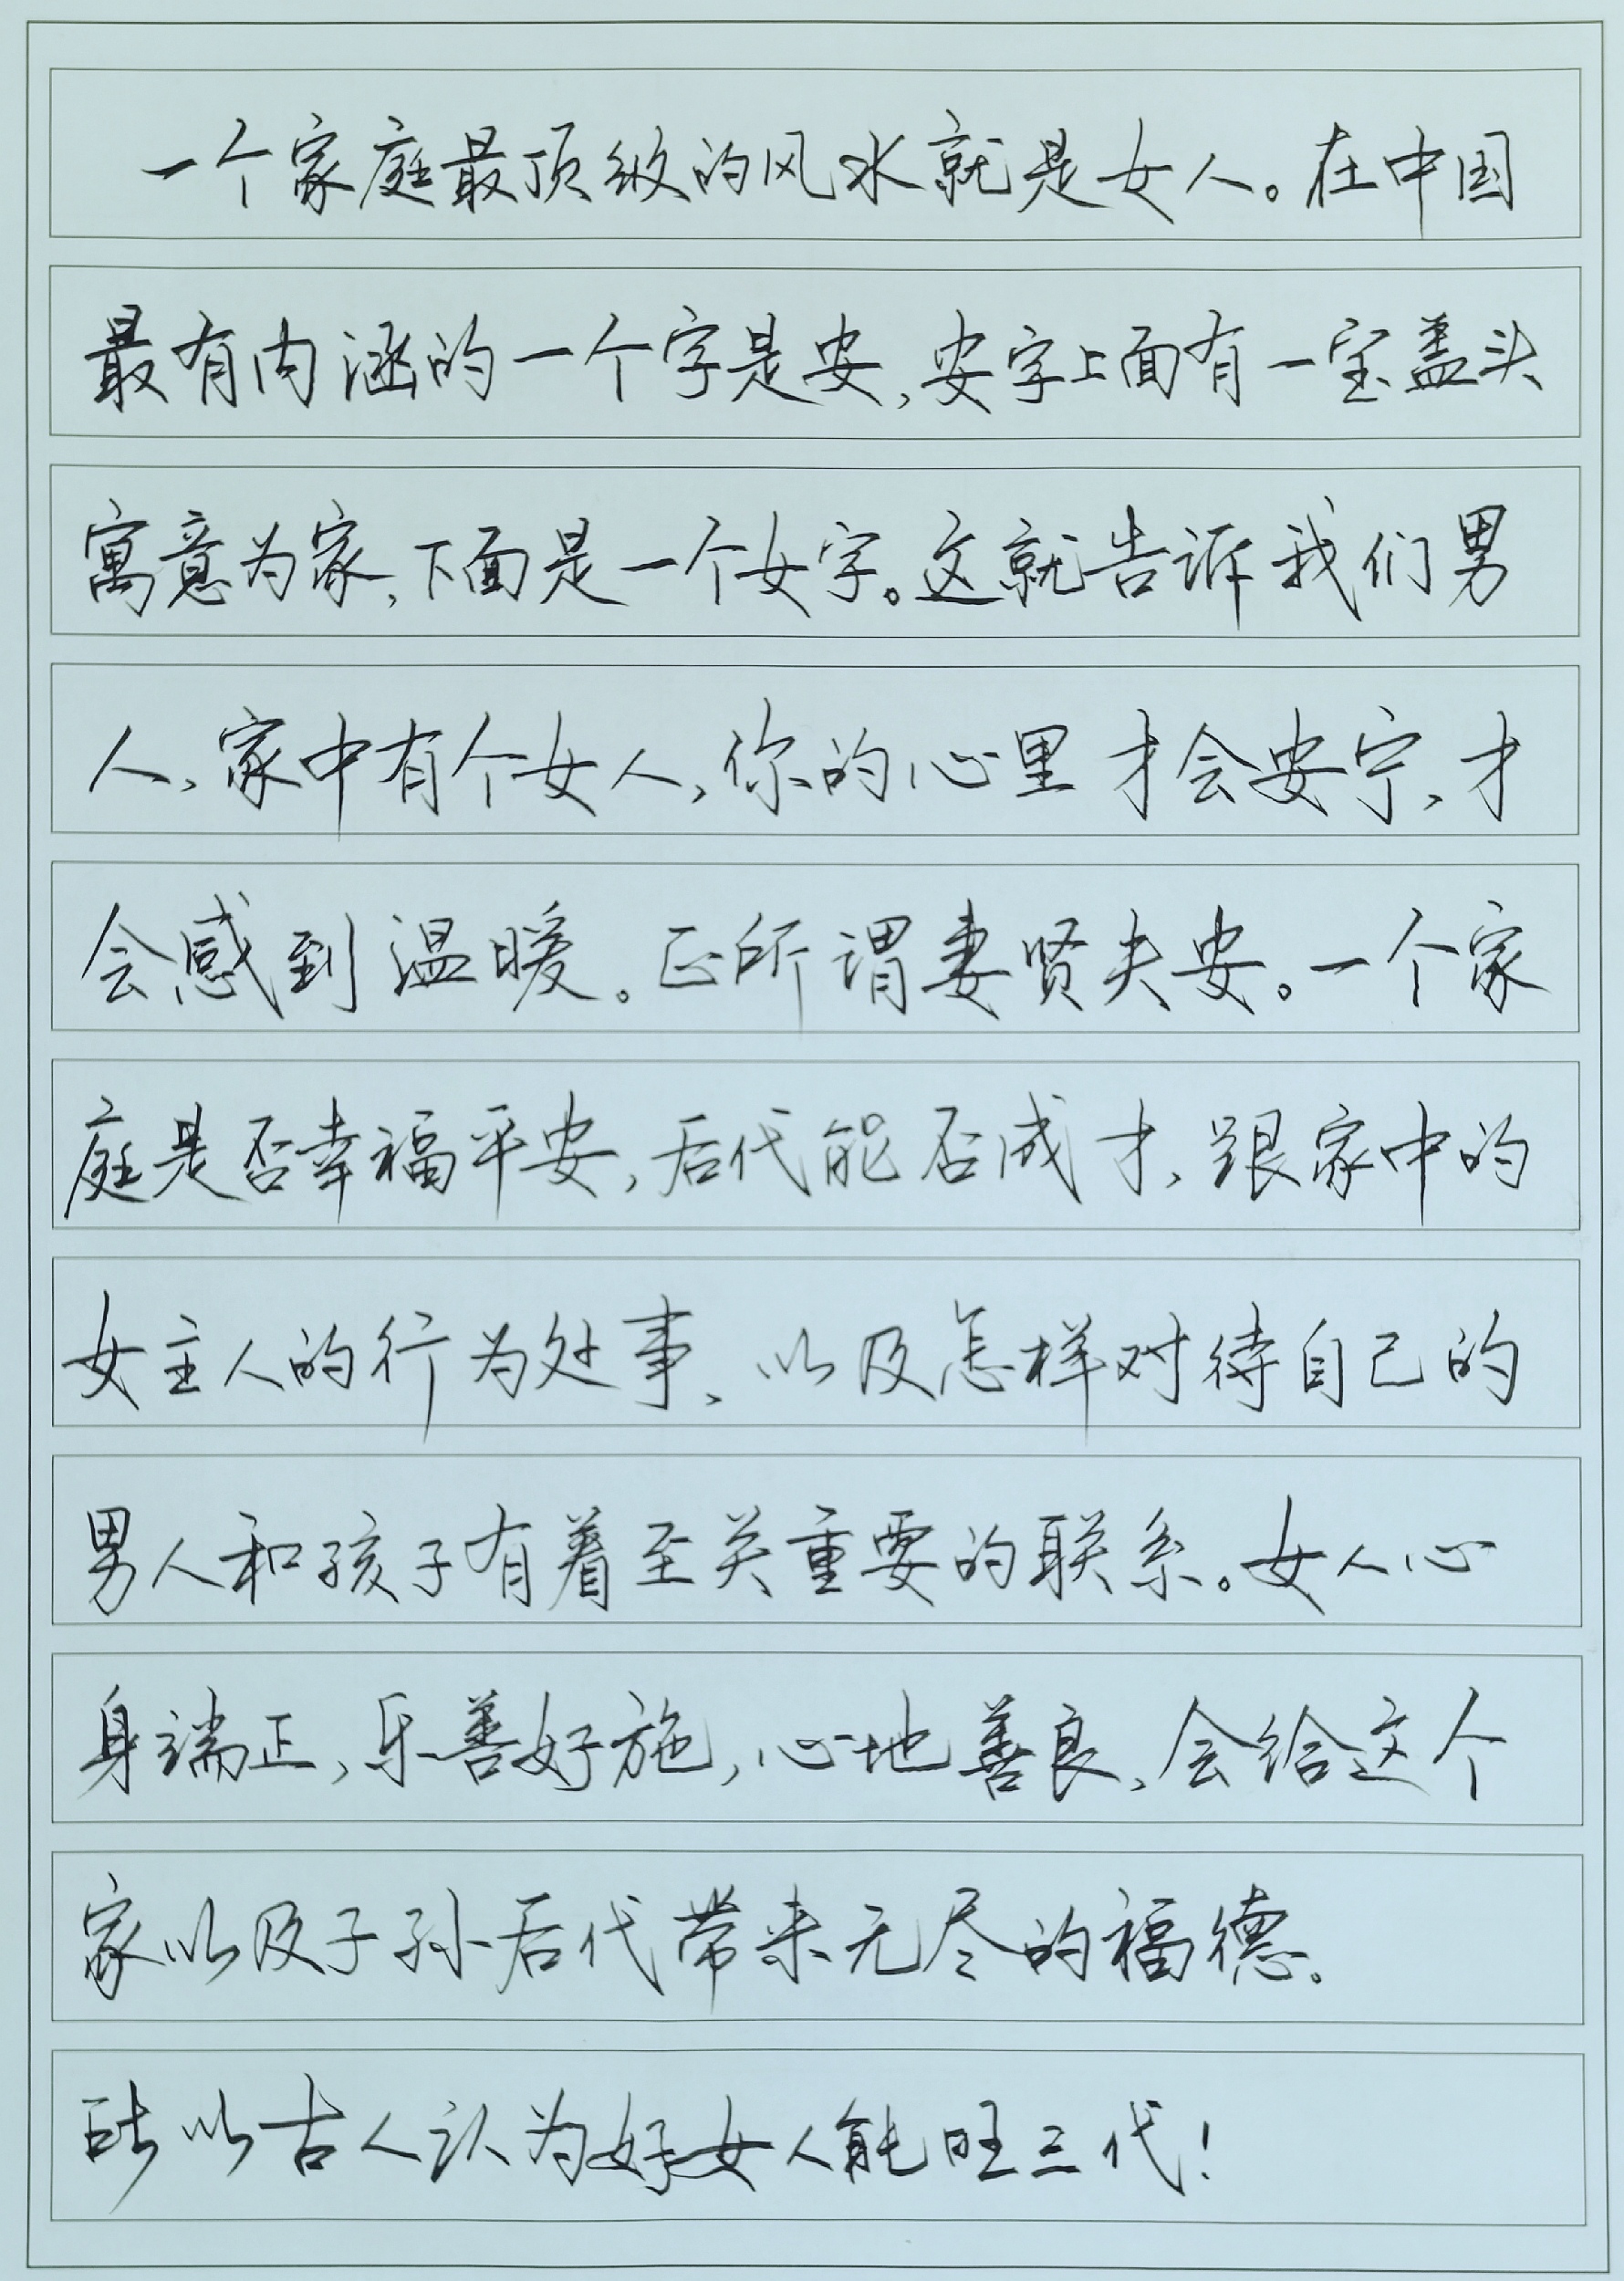 一个家庭最顶级的风水就是女人。在中国
最有内涵的一个字是安,安字上面有一宝盖头
寓意为家,下面是一个女字。这就告诉我们男
人,家中有个女人,你的心里才会安宁,才
会感到温暖。正所谓妻贤夫安。一个家
庭是否幸福平安,后代能否成才,跟家中的
女主人的行为处事、以及怎样对待自己的
男人和孩子有着至关重要的联系。女人心
身端正,乐善好施,心地善良,会给这个
家以及子孙后代带来无尽的福德。
所以古人认为好女人能旺三代!